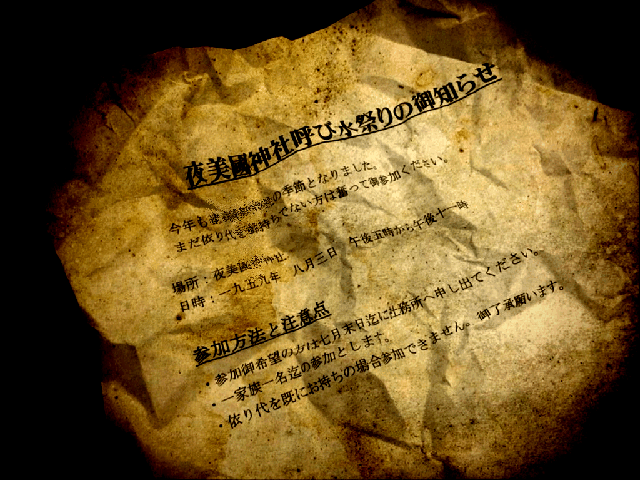 夜美國神社呼び水祭りの御知らせ
今年もま の季節となりました。
まだ依り代を御持ちでない方は奮って御参加ください。
場所:夜美國神社
日時:一九五九年 八月三日 午後五時から午後十一時
参加方法と注意点
・参加御希望の方は七月末日迄に社務所へ申し出てください。
・一家族一名迄の参加とします。
・依り代を既にお持ちの場合参加できません。御了承願います。